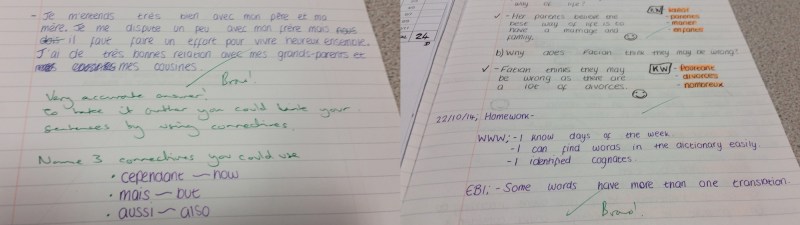 - Je m'entends très bien avec mon père et ma
mère. Je me dispute un peu avec mon frère mais
il faut faire un effort pour vivre heureux ensemble.
J'ai de très bonnes relation avec mes grands-parents et
mes cousines.
Bravo!
Very accurate answer!
To make it further you could link your
sentences by using connectives.
Name 3 connectives you could use
• cependant — how
• mais — but
• aussi — also
- Her parents believe the
best way of life is to
have a marriage and
family.
- parents
- marier
- enfance
24
b) Why does Fabian think they may be wrong?
- Fabian thinks they may
be wrong as there are
a lot of divorces.
KW
- divorcés
- nombreux
22/10/14; Homework-
WWW; - I know days of the week.
- I can find words in the dictionary easily.
- I identified cognates
EBI; - Some words have more than one translation.
Bravo!